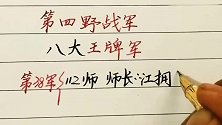 第四野战军
八大王牌军
第38军{112师 师长:江拥